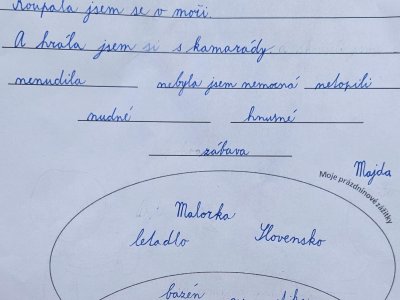 Koupala jsem se v moři.
A hrála jsem si s kamarády.
nenudila nebyla jsem nemocná netopili
nudné hnusné
zábava
Majda
Moje prázdninové zážitky
Malorka
letadlo Slovensko
bazén